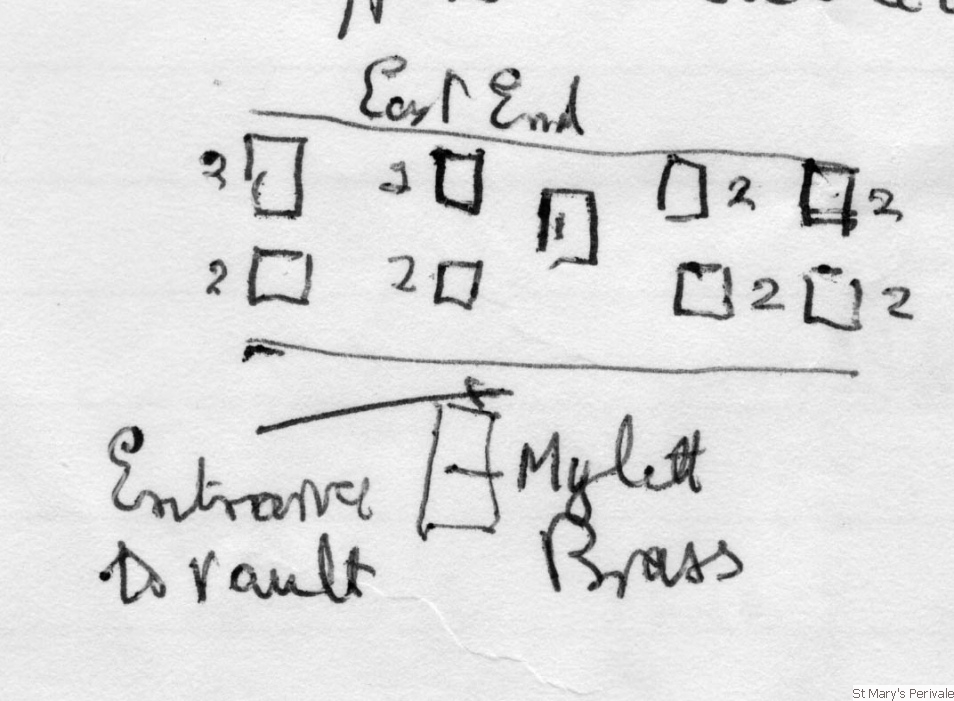 East End
2 2 2 2
1
2 2 2 2
Entrance
to vault
Mylett
Brass
St Mary's Perivale